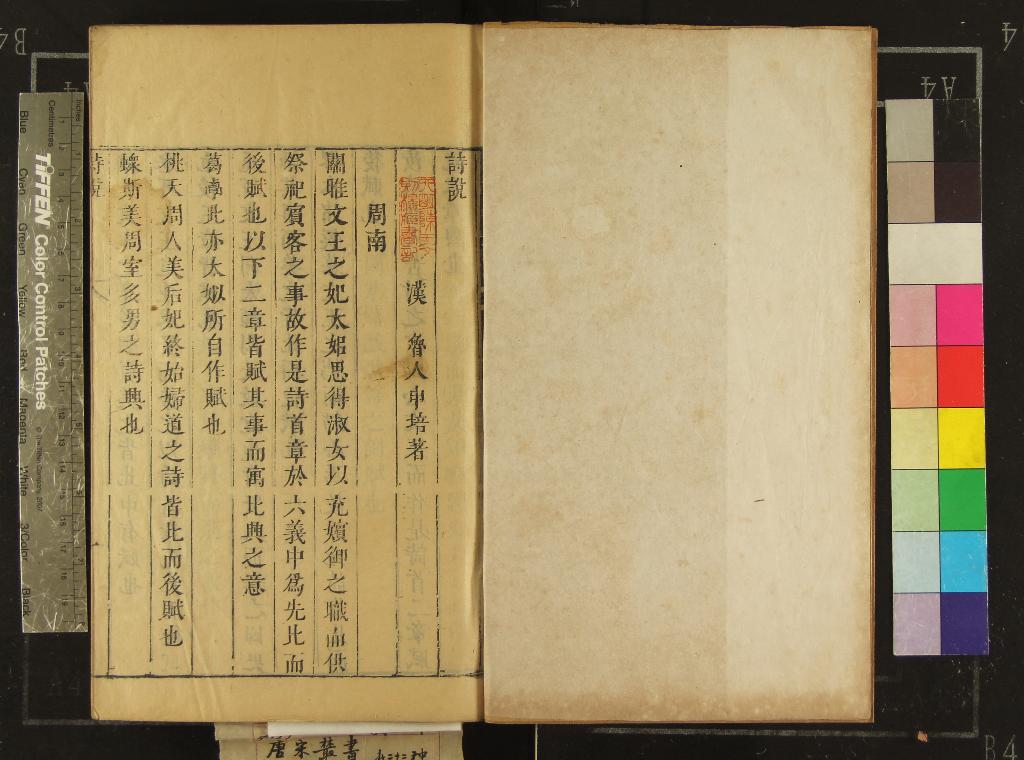 詩說
漢 魯人申培著
周南
關雎文王之妃太姒思得淑女以充嬪御之職而供
祭祀賓客之事故作是詩首章於六義中爲先比而
後賦也以下二章皆賦其事而寓比興之意
葛覃此亦太姒所自作賦也
桃夭周人美后妃終始婦道之詩皆比而後賦也
螽斯美周室多男之詩興也
詩說
唐宋叢書
Inches
Centimetres
TIFFEN Color Control Patches
© The Tiffen Company, 2007
Blue
Cyan
Green
Yellow
Red
Magenta
White
3/Color
Black
A4
B4